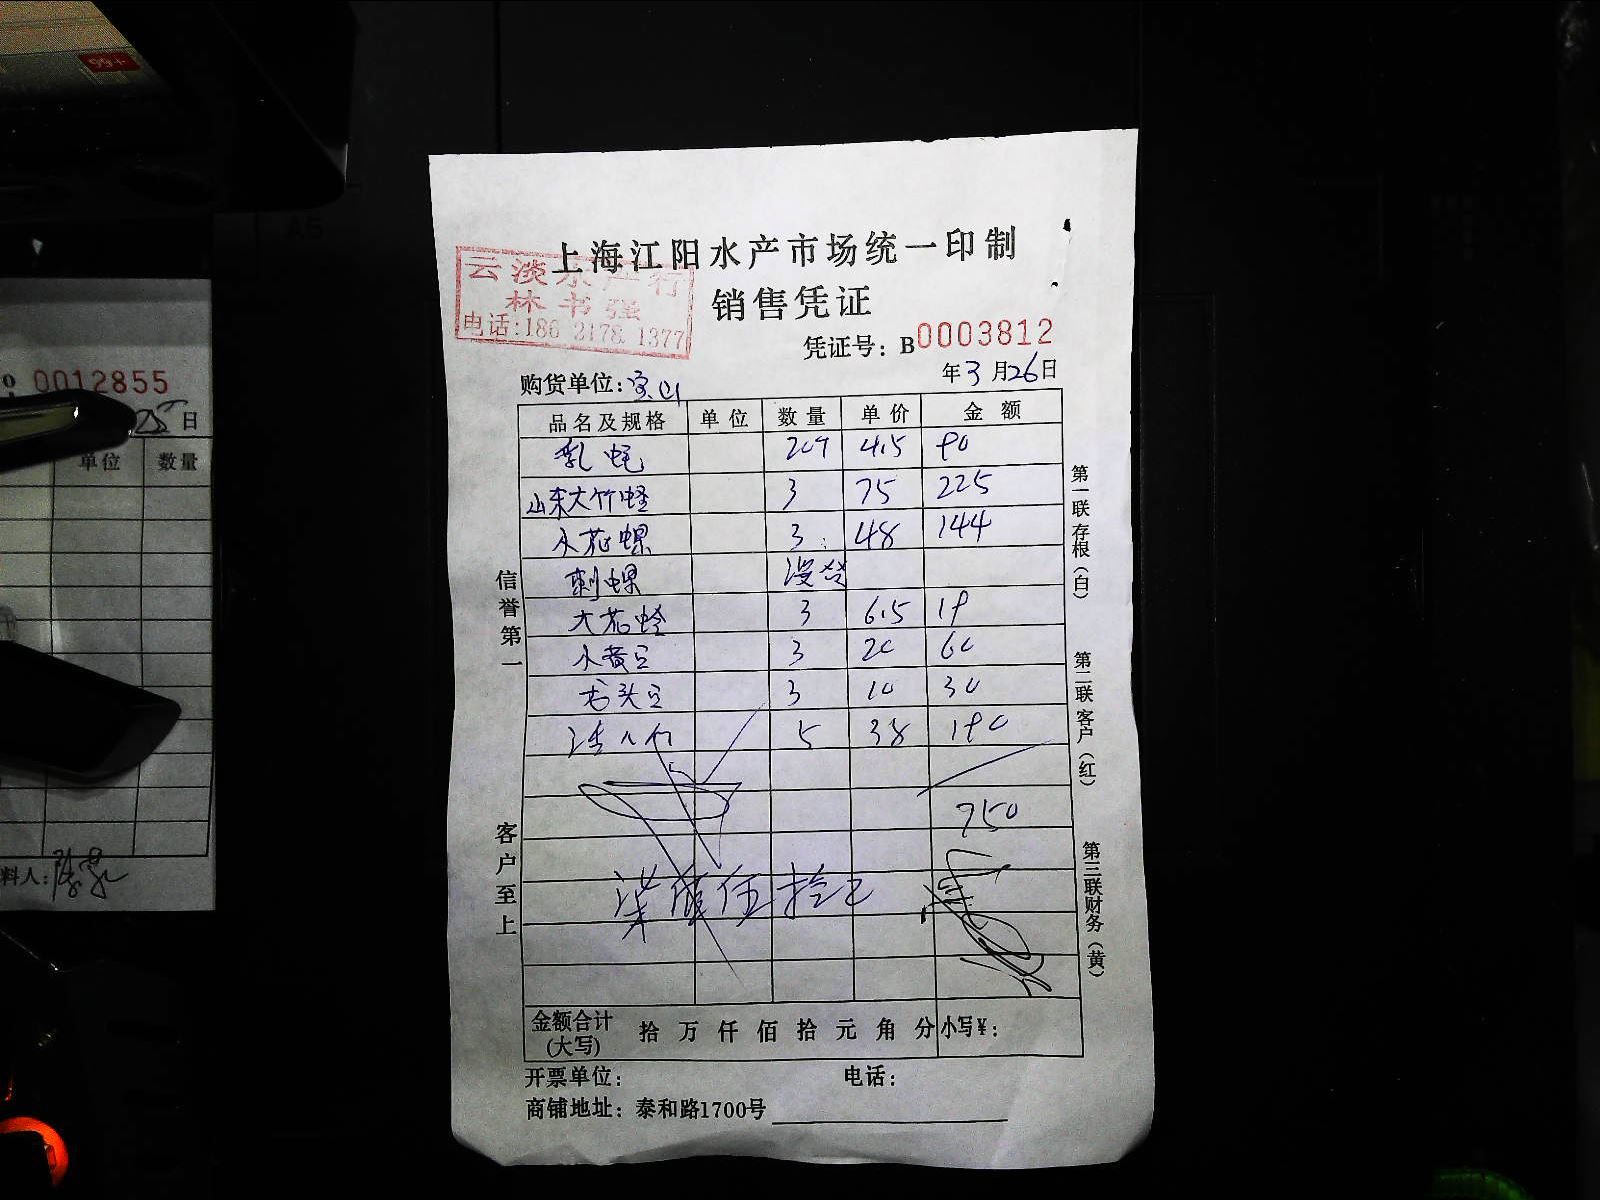 99+
A5
0012855
25日
单位 数量
料人:
上海江阳水产市场统一印制
云淡水产行
林书强
电话:186 2178 1377
销售凭证
凭证号: B0003812
年3月26日
购货单位:宝山
品名及规格 单位 数量 单价 金额
乳蚝 20个 4.5 90
山东大竹蛏 3 75 225
小花螺 3 48 144
刺螺 没发
大花蛤 3 6.5 19
小黄豆 3 20 60
石头豆 3 10 30
5 38 190
750
柒佰伍拾元
信誉第一
客户至上
第一联存根(白)
第二联客户(红)
第三联财务(黄)
金额合计(大写) 拾 万 仟 佰 拾 元 角 分 小写¥:
开票单位: 电话:
商铺地址: 泰和路1700号